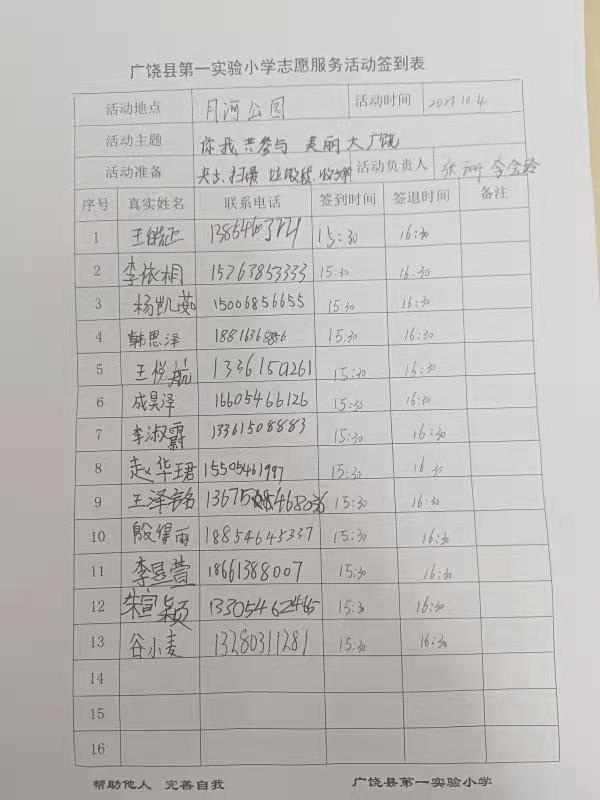 广饶县第一实验小学志愿服务活动签到表
活动地点 月河公园 活动时间 2021.10.4
活动主题 你我共参与 美丽大广饶
活动准备 夹子、扫帚 垃圾袋、 活动负责人 张 李金玲
序号 真实姓名 联系电话 签到时间 签退时间 备注
1 王皓正 15:30 16:30
2 李依桐 15263853333 15:30 16:30
3 杨凯茹 15006856655 15:30 16:30
4 韩思泽 15:30 16:30
5 王悦航 15:30 16:30
6 成昊泽 16605466126 15:30 16:30
7 李淑霨 13361508883 15:30 16:30
8 赵华珺 15505461997 15:30 16 30
9 王泽铭 15:30 16:30
10 殷得雨 18854645337 15:30 16:30
11 李昱萱 18661388007 15:30 16:30
12 朱宣颖 13305462465 15:30 16:30
13 谷小麦 13280311281 15:30 16:30
14
15
16
帮助他人 完善自我 广饶县第一实验小学